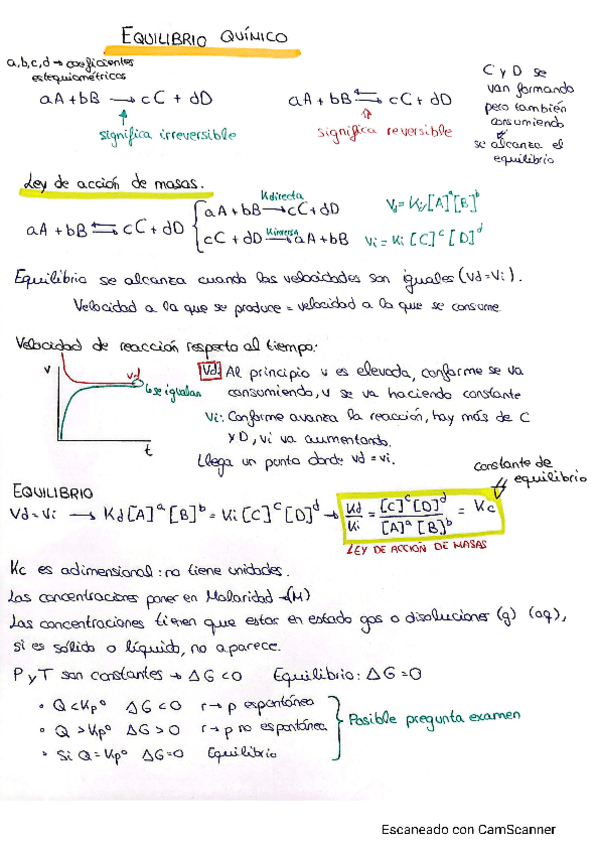 EQUILIBRIO QUÍMICO
a,b,c,d → coeficientes
estequiométricos
aA + bB → cC + dD
significa irreversible
aA + bB ⇆ cC + dD
significa reversible
C y D se
van formando
pero también
consumiendo
se alcanza el
equilibrio
Ley de acción de masas.
aA + bB ⇆ cC + dD
Kdirecta
aA + bB → cC + dD
Vd = Kd [A]^a [B]^b
Kinversa
cC + dD → aA + bB
Vi = Ki [C]^c [D]^d
Equilibrio se alcanza cuando las velocidades son iguales (Vd = Vi).
Velocidad a la que se produce = velocidad a la que se consume
Velocidad de reacción respecto al tiempo:
v
vd
se igualan
t
Vd: Al principio v es elevada, conforme se va
consumiendo, v se va haciendo constante
Vi: Conforme avanza la reacción, hay más de C
y D, vi va aumentando.
Llega un punto donde vd = vi.
constante de
equilibrio
EQUILIBRIO
Vd = Vi → Kd [A]^a [B]^b = Ki [C]^c [D]^d → Kd/Ki = [C]^c [D]^d / [A]^a [B]^b = Kc
LEY DE ACCIÓN DE MASAS
Kc es adimensional: no tiene unidades.
Las concentraciones poner en Molaridad → (M)
Las concentraciones tienen que estar en estado gas o disoluciones (g) (aq),
si es sólido o líquido, no aparece.
P y T son constantes → ΔG < 0 Equilibrio: ΔG = 0
• Q < Kp° ΔG < 0 r → p espontánea
• Q > Kp° ΔG > 0 r → p no espontánea
• Si Q = Kp° ΔG = 0 Equilibrio
Posible pregunta examen
Escaneado con CamScanner